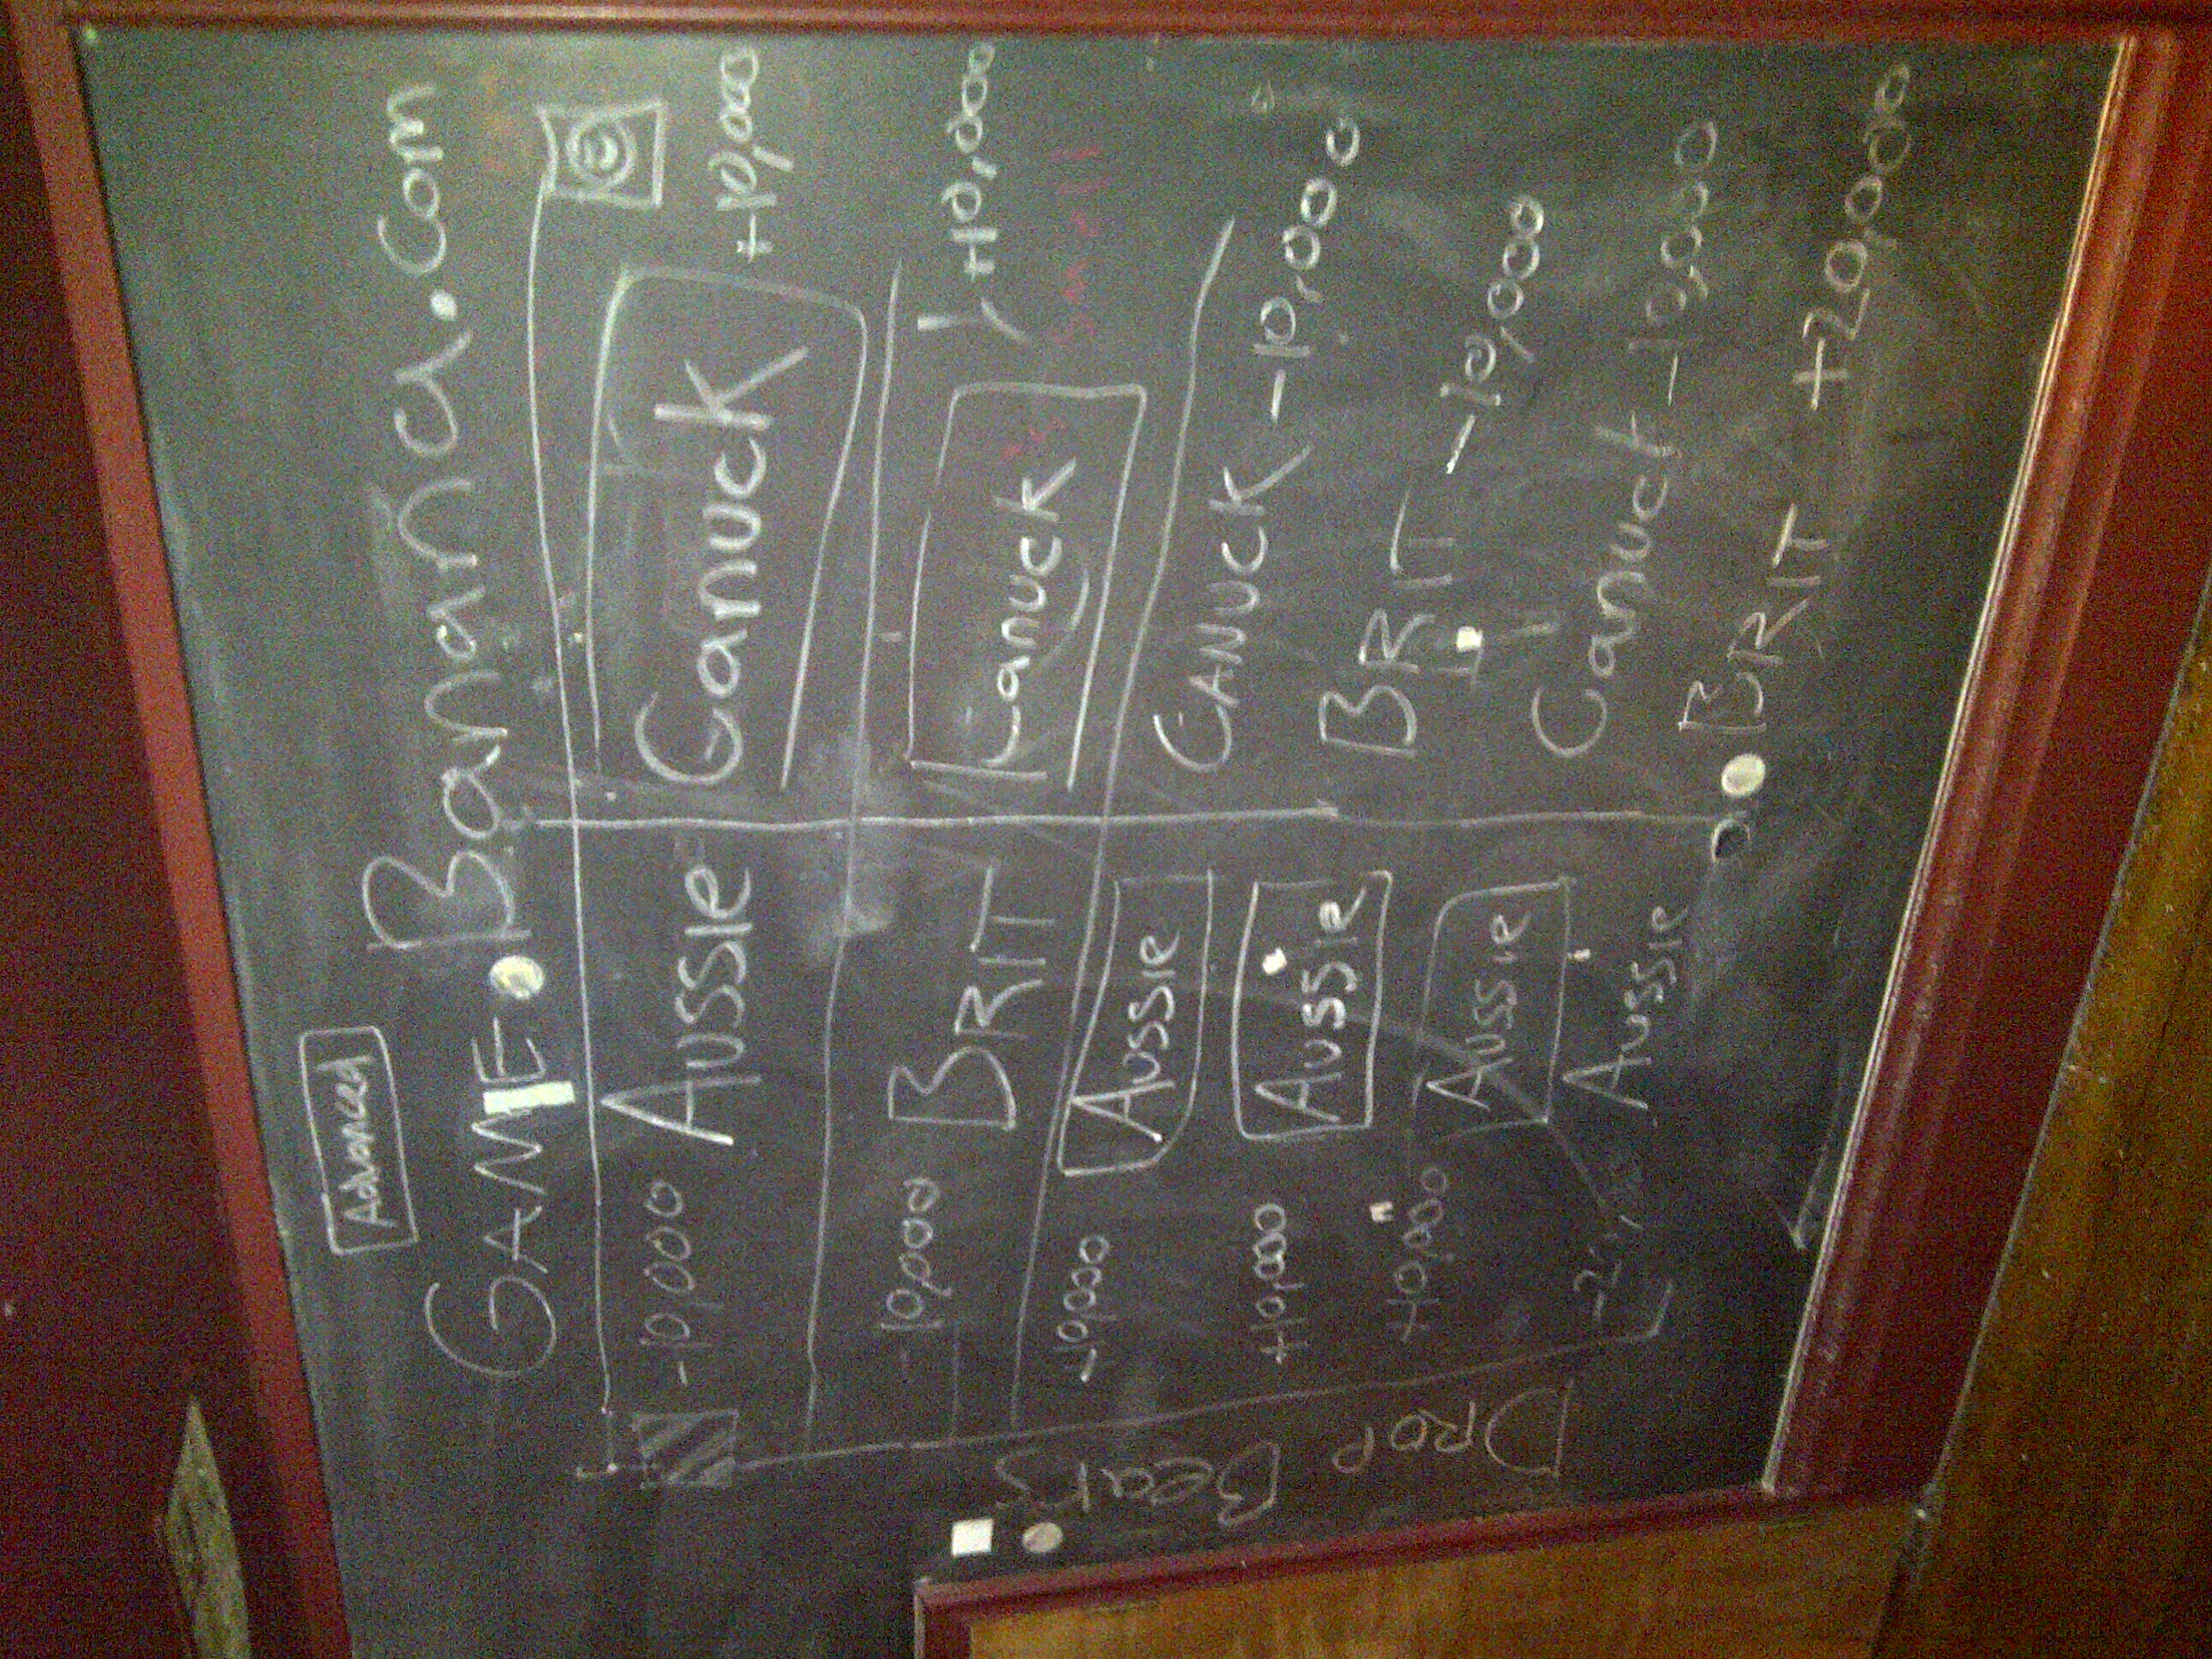 Advanced
GAME • Banana.com
-10,000 Aussie Canuck +10,000
-10,000 BRIT Canuck +10,000
small
-10,000 Aussie CANUCK -10,000
+10,000 Aussie BRIT -10,000
+10,000 Aussie Canuck -10,000
Aussie BRIT +20,000
DROP Bears